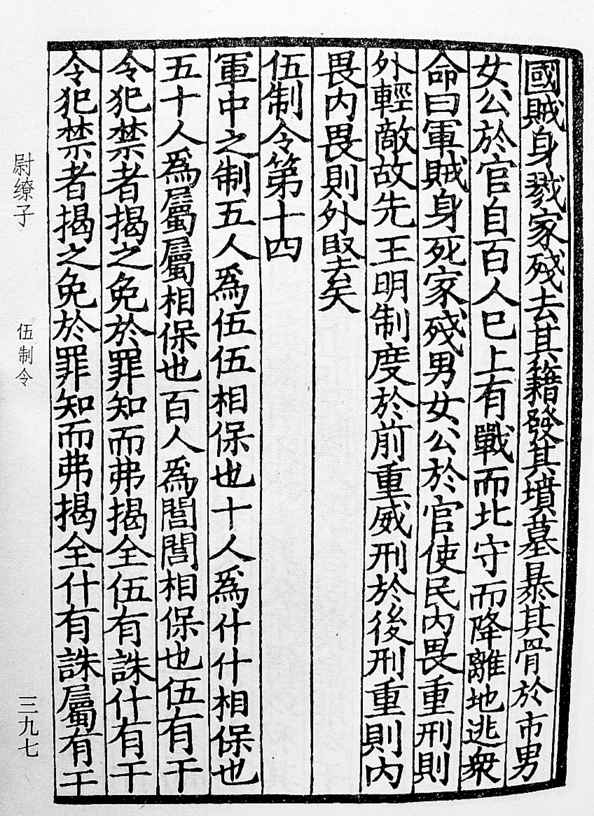 國賊身戮家殘去其籍發其墳墓暴其骨於市男
女公於官自百人已上有戰而北守而降離地逃衆
命曰軍賊身死家殘男女公於官使民内畏重刑則
外輕敵故先王明制度於前重威刑於後刑重則内
畏内畏則外堅矣
伍制令第十四
軍中之制五人爲伍伍相保也十人爲什什相保也
五十人爲屬屬相保也百人爲閭閭相保也伍有干
令犯禁者揭之免於罪知而弗揭全伍有誅什有干
令犯禁者揭之免於罪知而弗揭全什有誅屬有干
尉缭子
伍制令
三九七